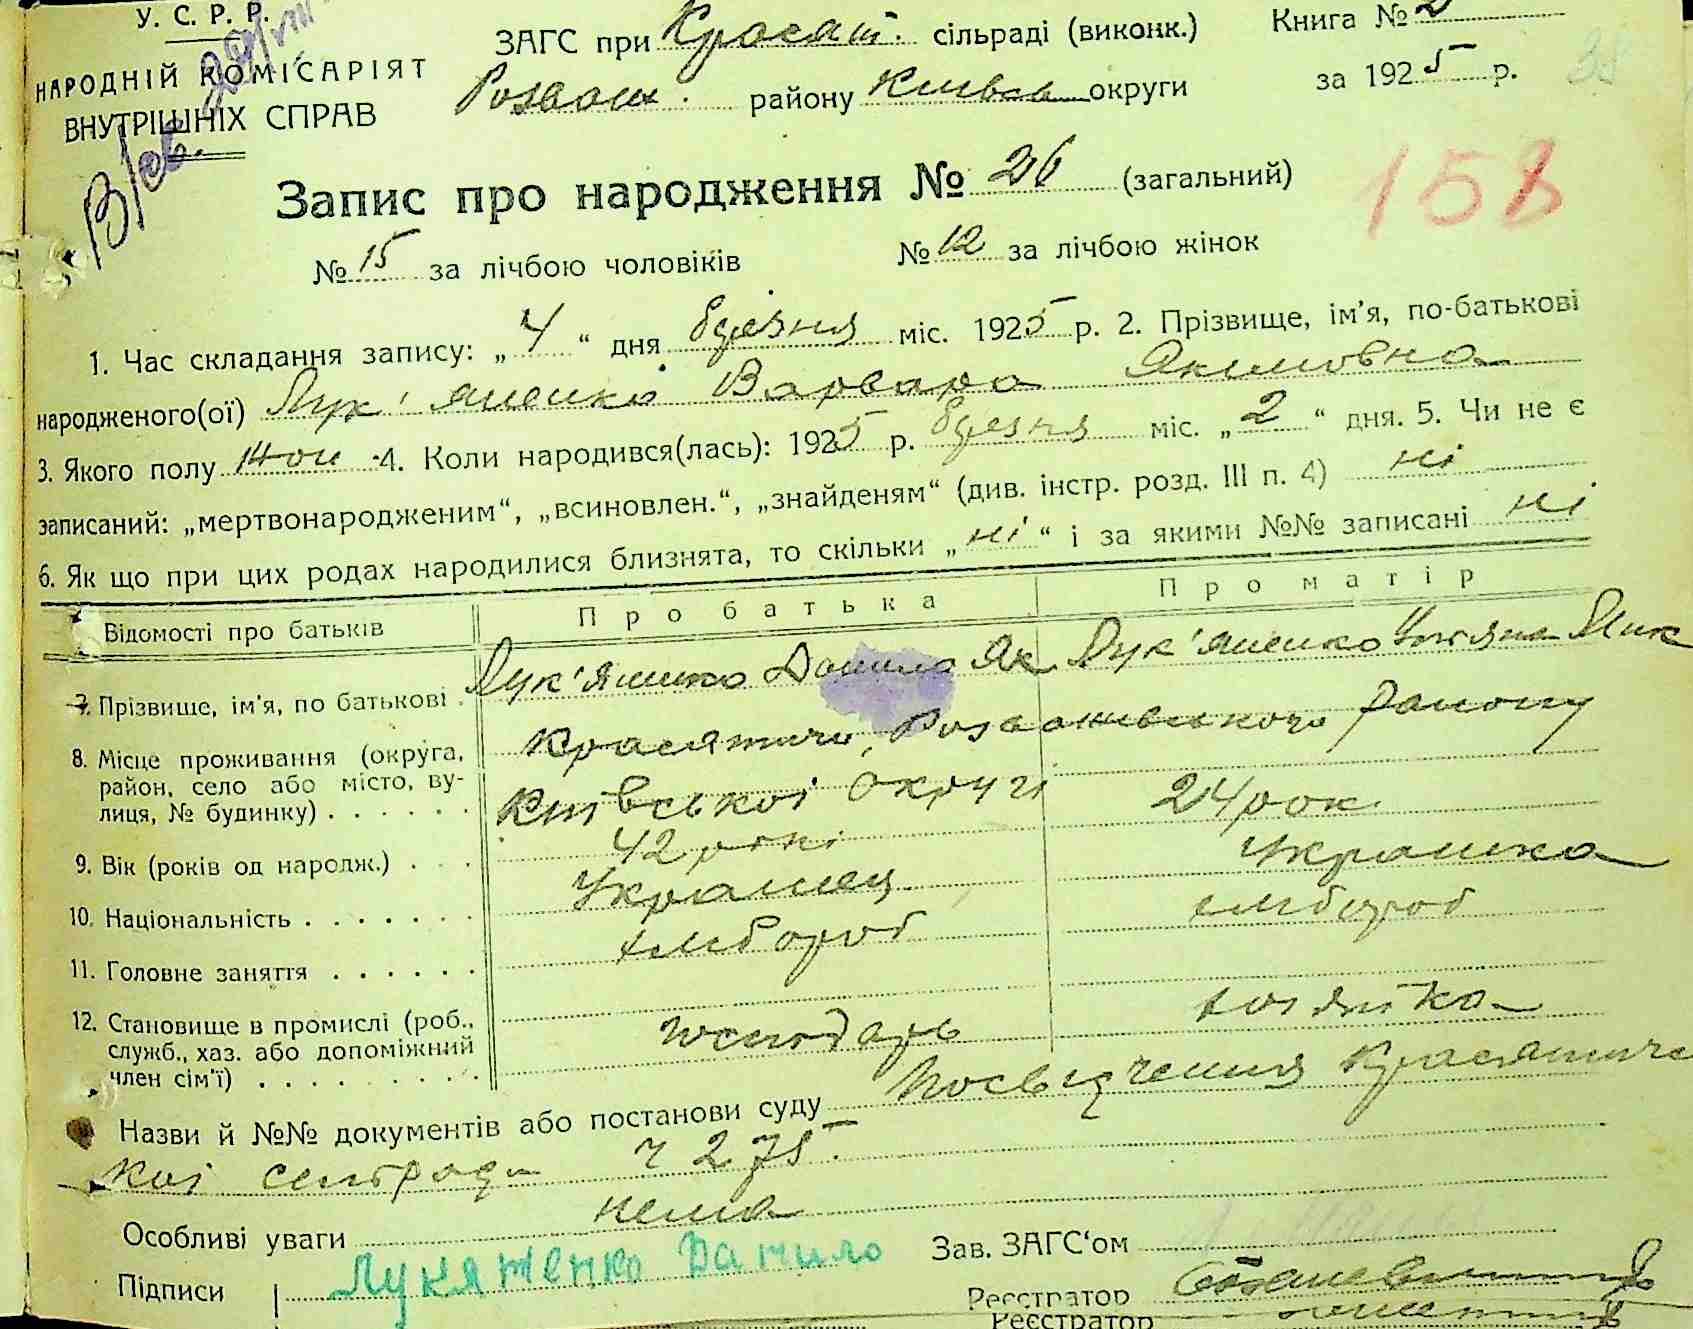 У. С. Р. Р.
НАРОДНІЙ КОМІСАРІЯТ
ВНУТРІШНІХ СПРАВ
ЗАГС при Красят. сільраді (виконк.)
Розваж. району Київськ округи
Книга № 2
за 1925 р.
38
158
Запис про народження № 26 (загальний)
№ 15 за лічбою чоловіків № 12 за лічбою жінок
1. Час складання запису: „ 4 “ дня березня міс. 1925 р. 2. Прізвище, ім'я, по-батькові
народженого(ої) Лук'яненко Варвара Якимовна
3. Якого полу жон 4. Коли народився(лась): 1925 р. березня міс. „ 2 “ дня. 5. Чи не є
записаний: „мертвонародженим“, „всиновлен.“, „знайденям“ (див. інстр. розд. III п. 4) ні
6. Як що при цих родах народилися близнята, то скільки „ ні “ і за якими №№ записані ні
Відомості про батьків Про батька Про матір
7. Прізвище, ім'я, по батькові . Лук'яненко Данило Як Лук'яненко Мик
8. Місце проживання (округа, район, село або місто, вулиця, № будинку) . . . . . . Красятичи, Розважівського району
Київської округі
9. Вік (років од народж.) . . . 42 рокі 24 рок.
10. Національність . . . . . . . Українец Українка
11. Головне заняття . . . . . . хлібороб хлібороб
12. Становище в промислі (роб., служб., хаз. або допоміжний член сім'ї) . . . . . . . . . господарь хозяйка
Назви й №№ документів або постанови суду Посвідчення Красятиче
кої сельради ч 275
Особливі уваги нема
Зав. ЗАГС'ом
Підписи Лукяненко Данило
Реєстратор
Реєстратор